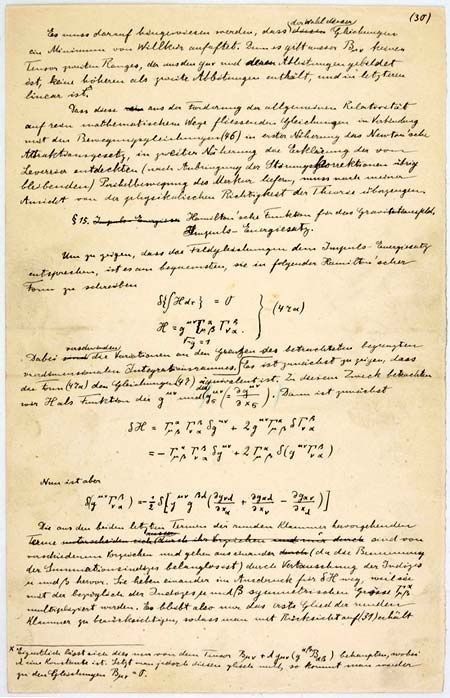 (30)
Es muss darauf hingewiesen werden, dass der Wahl dieser Gleichungen
ein Minimum von Willkür anhaftet. Denn es gibt ausser Bμν keinen
Tensor zweiten Ranges, der aus den gμν und deren Ableitungen gebildet
ist, keine höheren als zweite Ableitungen enthält, und in letzteren
linear ist.ˣ
Dass diese aus der Forderung der allgemeinen Relativität
auf rein mathematischem Wege fliessenden Gleichungen in Verbindung
mit den Bewegungsgleichungen (46) in erster Näherung das Newton'sche
Attraktionsgesetz, in zweiter Näherung die Erklärung der von
Leverrier entdeckten (nach Anbringung der Störungskorrektionen übrig
bleibenden) Perihelbewegung des Merkur liefern, muss nach meiner
Ansicht von der physikalischen Richtigkeit der Theorie überzeugen.
§ 15. Hamilton'sche Funktion für das Gravitationsfeld,
Impuls-Energiesatz.
Um zu zeigen, dass die Feldgleichungen dem Impuls-Energiesatz
entsprechen, ist es am bequemsten, sie in folgender Hamilton'scher
Form zu schreiben
δ{∫H dτ} = 0
H = g^μν Γ^α_μβ Γ^β_να } (47a)
√-g = 1
Dabei verschwinden die Variationen an den Grenzen des betrachteten begrenzten
vierdimensionalen Integrationsraumes. Es ist zunächst zu zeigen, dass
die Form (47a) den Gleichungen (47) äquivalent ist. Zu diesem Zweck betrachten
wir H als Funktion der g^μν und der g^μν_σ (= ∂g^μν/∂x_σ). Dann ist zunächst
δH = Γ^α_μβ Γ^β_να δg^μν + 2 g^μν Γ^α_μβ δΓ^β_να
= - Γ^α_μβ Γ^β_να δg^μν + 2 Γ^α_μβ δ(g^μν Γ^β_να)
Nun ist aber
δ(g^μν Γ^β_να) = -½ δ[g^μν g^βλ (∂g_νλ/∂x_α + ∂g_αλ/∂x_ν - ∂g_αν/∂x_λ)]
Die aus den beiden letzten Termen der runden Klammer hervorgehenden
Terme sind von
verschiedenem Vorzeichen und gehen auseinander (da die Benennung
der Summationsindizes belanglos ist) durch Vertauschung der Indizes
μ und β hervor. Sie heben einander im Ausdruck für δH weg, weil sie
mit der bezüglich der Indizes μ und β symmetrischen Grösse Γ^α_μβ
multipliziert werden. Es bleibt also nur das erste Glied der runden
Klammer zu berücksichtigen, sodass man mit Rücksicht auf (31) erhält
x Eigentlich lässt sich dies nur von dem Tensor Bμν + λ gμν (g^αβ Bαβ) behaupten, wobei
λ eine Konstante ist. Setzt man jedoch diesen gleich null, so kommt man wieder
zu den Gleichungen Bμν = 0.